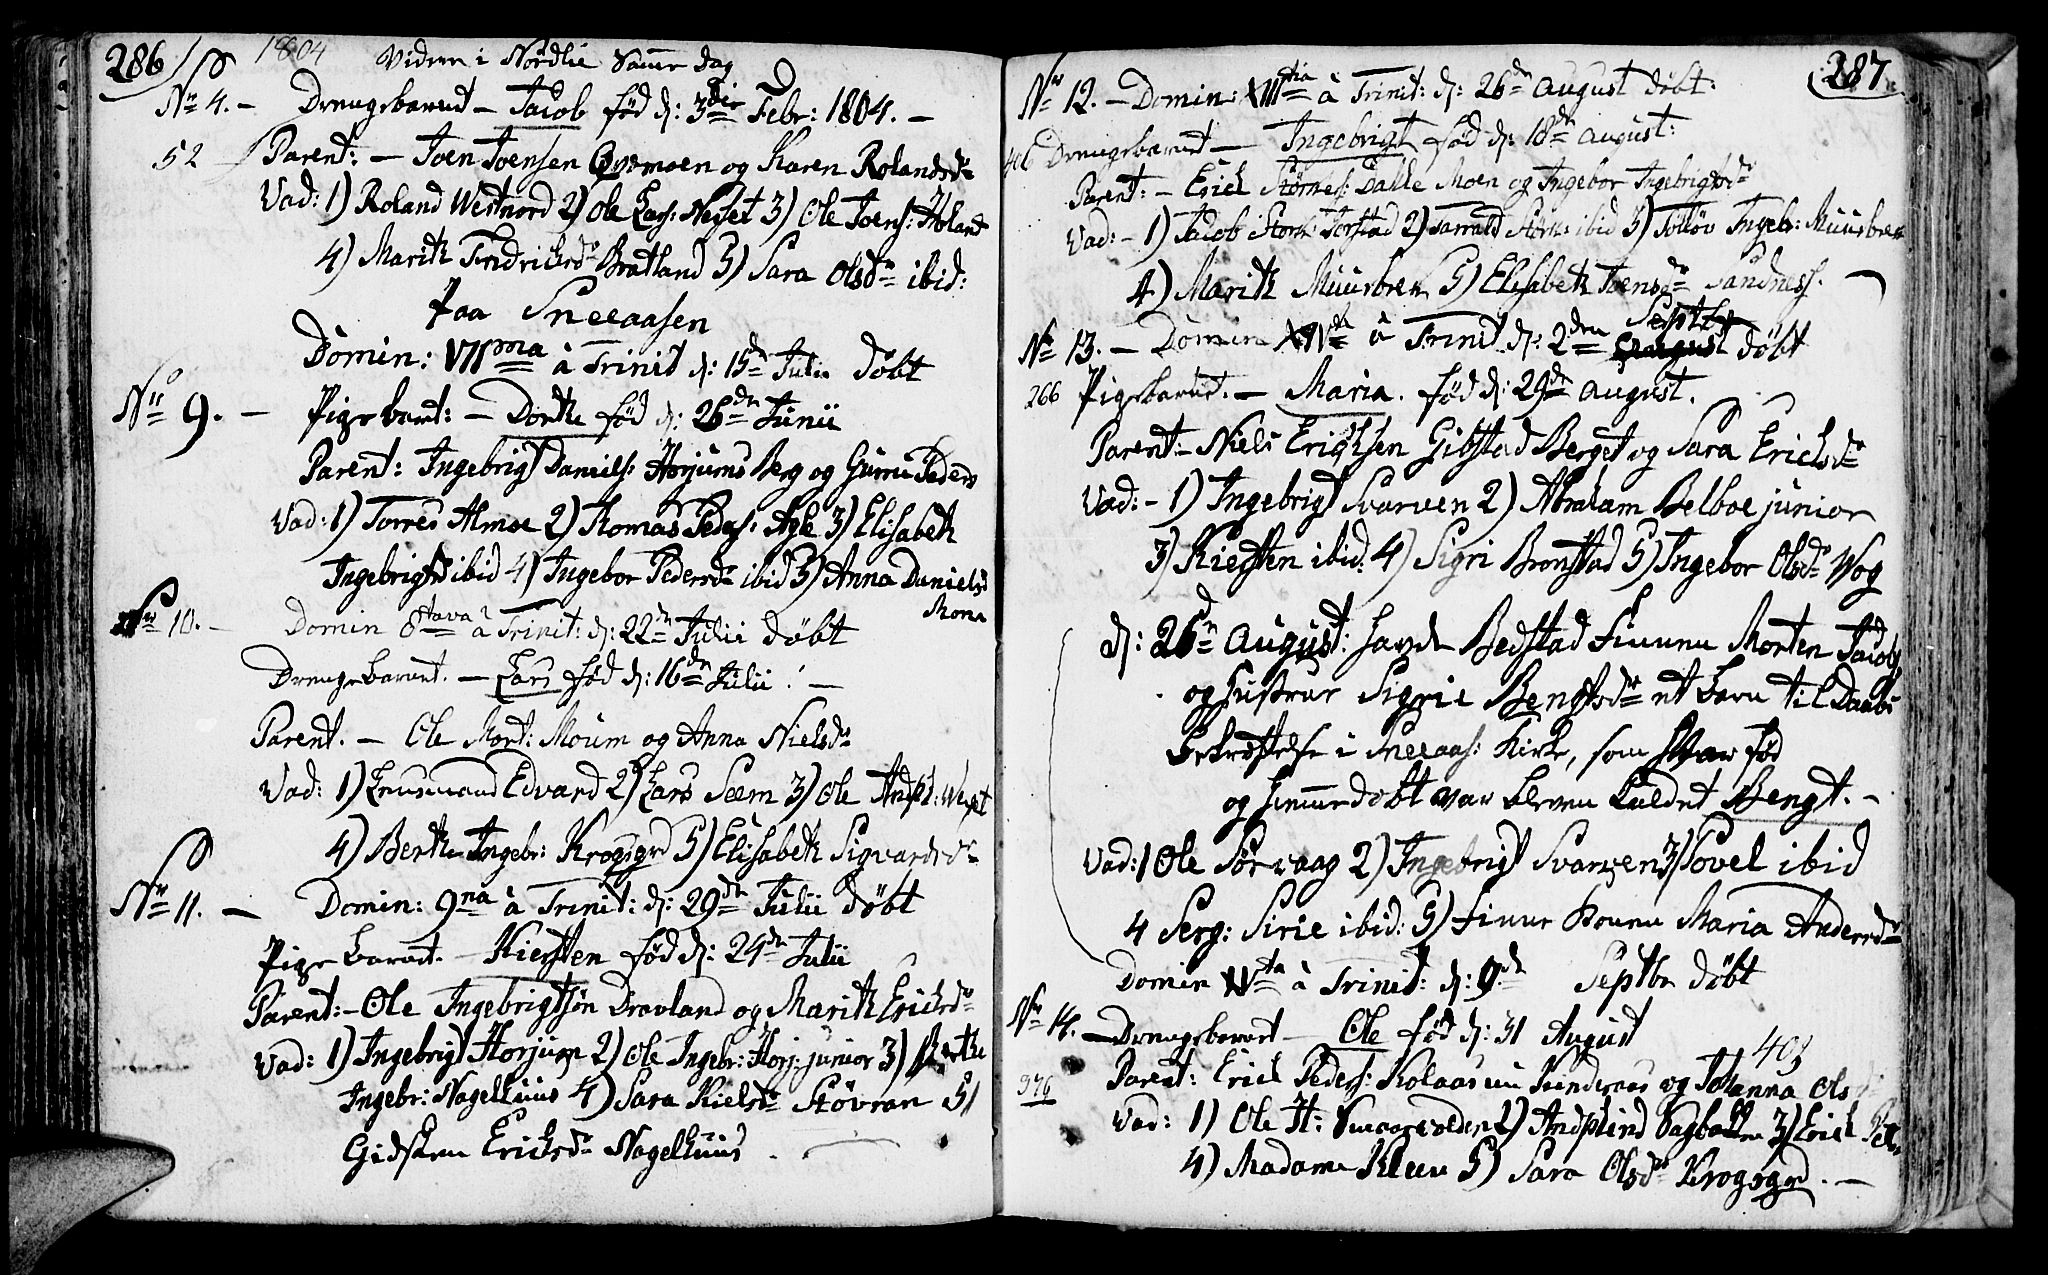 286 1804 Viden i Nordlie Samme Dag
No 4. - Drengebarnet - Jacob fød d: 3die Febr: 1804. -
52 Parent: - Joen Joensen Qvæmoen og Karen Rolandsdr
Vad: 1) Roland Westnord 2) Ole Lars: Nesset 3) Ole Joens: Holand
4) Marith Fredrichsdr Bratland 5) Sara Olsdr ibid:
Paa Sneeaasen
Domin: VIIma à Trinit d: 15de Julii döbt
No 9. - Pigebarnet: - Dorthe fød d: 26de Junii
Parent: Ingebrigt Daniels: Horjums Berg og Gurru Peders
Vad: 1) Torres Almoe 2) Thomas Peders: Agle 3) Elisabeth
Ingebrigtsd ibid 4) Ingebor Pedersdr ibid 5) Anna Danielsd
Mona
No 10. - Domin 8tava à Trinit: d: 22de Julii döbt
Drengebarnet. - Lars fød d: 16de Julii. -
Parent. - Ole Mort: Moum og Anna Nielsdr
Vad: 1) Lensmand Edvard 2) Lars Seem 3) Ole Andf:
4) Berthe Ingebr: Krogsgrd 5) Elisabeth Sigvardsdr
No 11. - Domin: 9na à Trinit: d: 29de Julii döbt
Pigebarnet. - Kiersten fød d: 24de Julii
Parent: - Ole Ingebrigtsøn Dravland og Marith Erichsdr
Vad: 1) Ingebrigt Horjum 2) Ole Ingebr: Horj: junior 3) Berthe
Ingebr: Nagelhuus 4) Sara Nielsdr Støvran 5)
Gidsken Erichsdr Nagelhuus.
287
No 12. - Domin: XIIItia à Trinit: d: 26de August döbt:
406 Drengebarnet - Ingebrigt fød d: 18de August:
Parent: - Erich Størkes: Dahle Moen og Ingebor Ingebrigtsdr
Vad: - 1) Jacob Størk: Jørstad 2) Størk: ibid 3) Tolløv Ingebr: Muusbren
4) Marith Muusbren 5) Elisabeth Joensdr Sandness. -
No 13. - Domin XIVta à Trinit d: 2den August Septbr döbt
266 Pigebarnet. - Maria. fød d: 29de August.
Parent: - Niels Erichsen Gibstad Berget og Sara Erichsdr
Vad: - 1) Ingebrigt Svarven 2) Abraham Belboe junior
3) Kiersten ibid: 4) Sigri Bronstad 5) Ingebor Olsdr Wog
d: 26de August: havde Bedstad Finnen Morten Jacobs
og Hustrue Sigrie Bengtsdr et barn til Daabs
Bekræftelse i Sneeaas: Kirke, som var fød
og hiemmedøbt var bleven kaldet Bengt. -
Vad: 1 Ole Sørvaag 2) Ingebrigt Svarven 3) Povel ibid
4 Serg: Sirie ibid: 5) Finne Konen Maria Andersdr
Domin XVta à Trinit: d: 9de Septbr döbt
No 14. - Drengebarnet - Ole fød d: 31 August
409
976 Parent: Erich Peders: Kolaasen og Johanna Ols
Vad: 1) Ole H: Smaavolden 2) Andfind Vagbatten 3) Erich
4) Madame Kleen 5) Sara Olsdr Krogsgrd. -